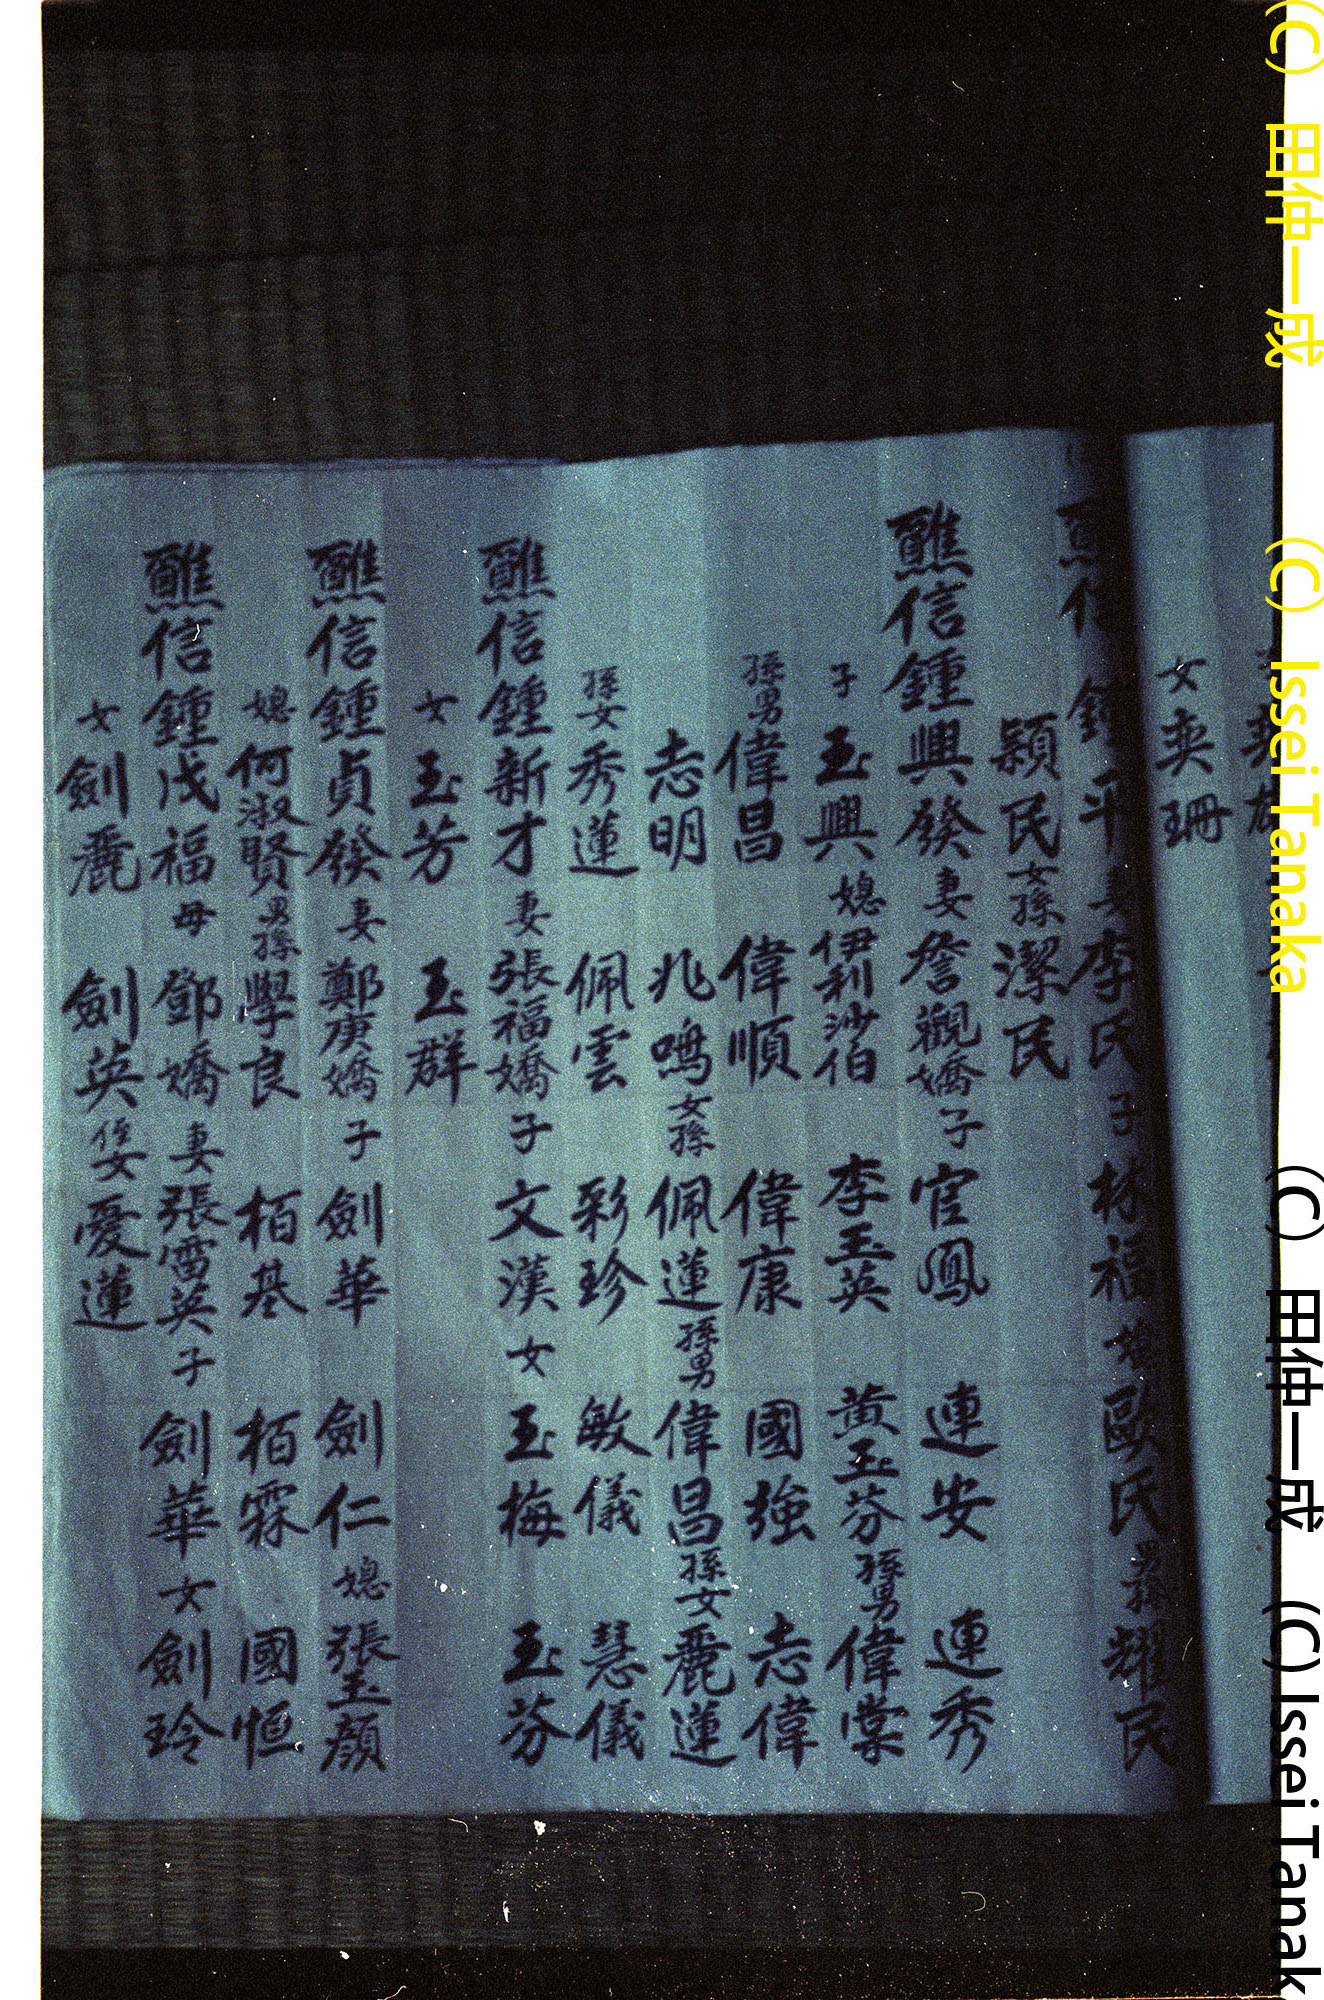 女奕珊
信鍾平妻李氏子林福媳歐氏男孫耀民
穎民女孫潔民
醮信鍾興發妻詹觀嬌子官鳳 連安 連秀
子玉興媳伊利沙伯 李玉英 黃玉芬孫男偉棠
孫男偉昌 偉順 偉康 國強 志偉
志明 兆鳴女孫佩蓮孫男偉昌孫女麗蓮
孫女秀蓮 佩雲 彩珍 敏儀 慧儀
醮信鍾新才妻張福嬌子文漢女玉梅 玉芬
女玉芳 玉群
醮信鍾貞發妻鄭庚嬌子劍華 劍仁媳張玉顏
媳何淑賢男孫學良 栢基 栢霖 國恒
醮信鍾戊福母鄧嬌妻張雷英子劍華女劍玲
女劍麗 劍英侄女愛蓮
(C) 田仲一成 (C) Issei Tanaka
(C) 田仲一成 (C) Issei Tanak